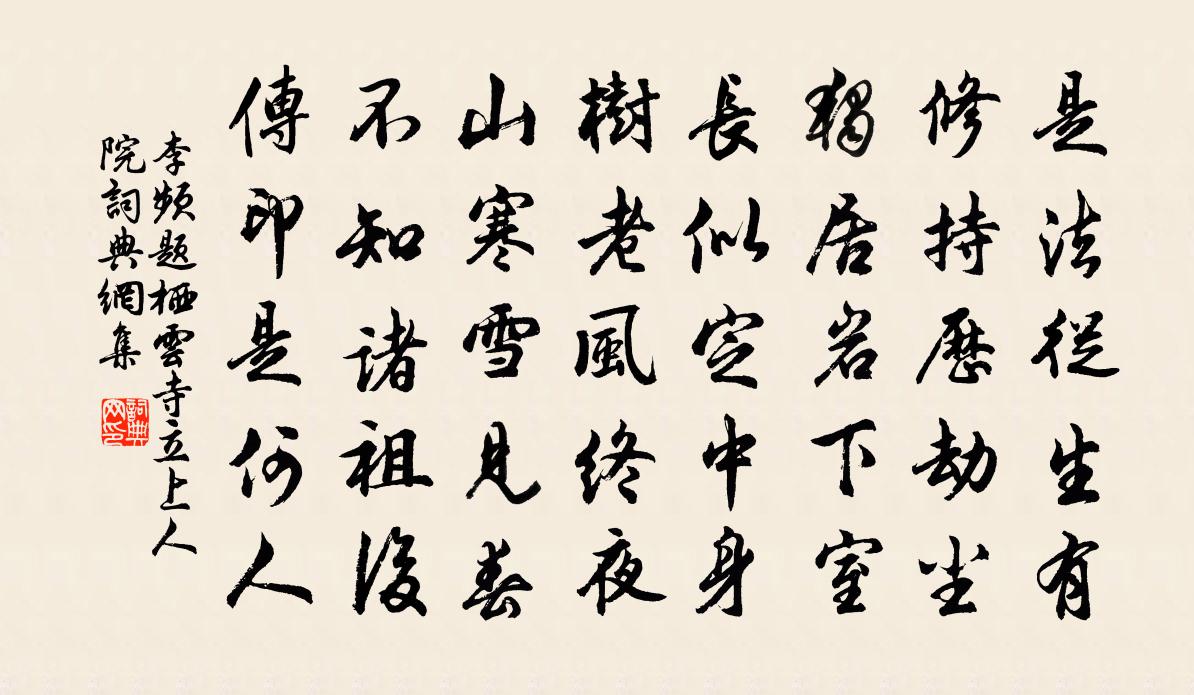 是法從生有
修持歷劫尘
獨居岩下室
長似定中身
樹老風終夜
山寒雪見春
不知諸祖後
傳印是何人
李頻題栖雲寺立上人
院詞典網集
詞典
网印